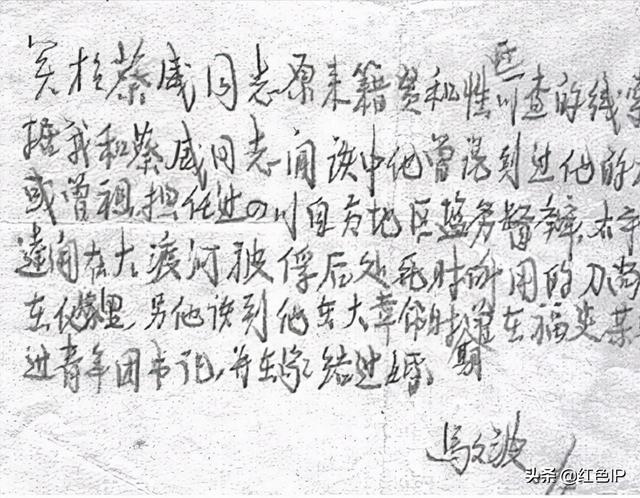 关于蔡威同志原来籍贯和性 些 查的线索
据我和蔡威同志闲谈中他曾谈到过他的
或曾祖,担任过四川自贡地区盐务督辦,石
达开在大渡河被俘后处死时所用的刀尚
在他家里,另他谈到他在大革命时期曾在福安某
过青年团书记,并在家结过婚。
馬文波
头条 @红色IP